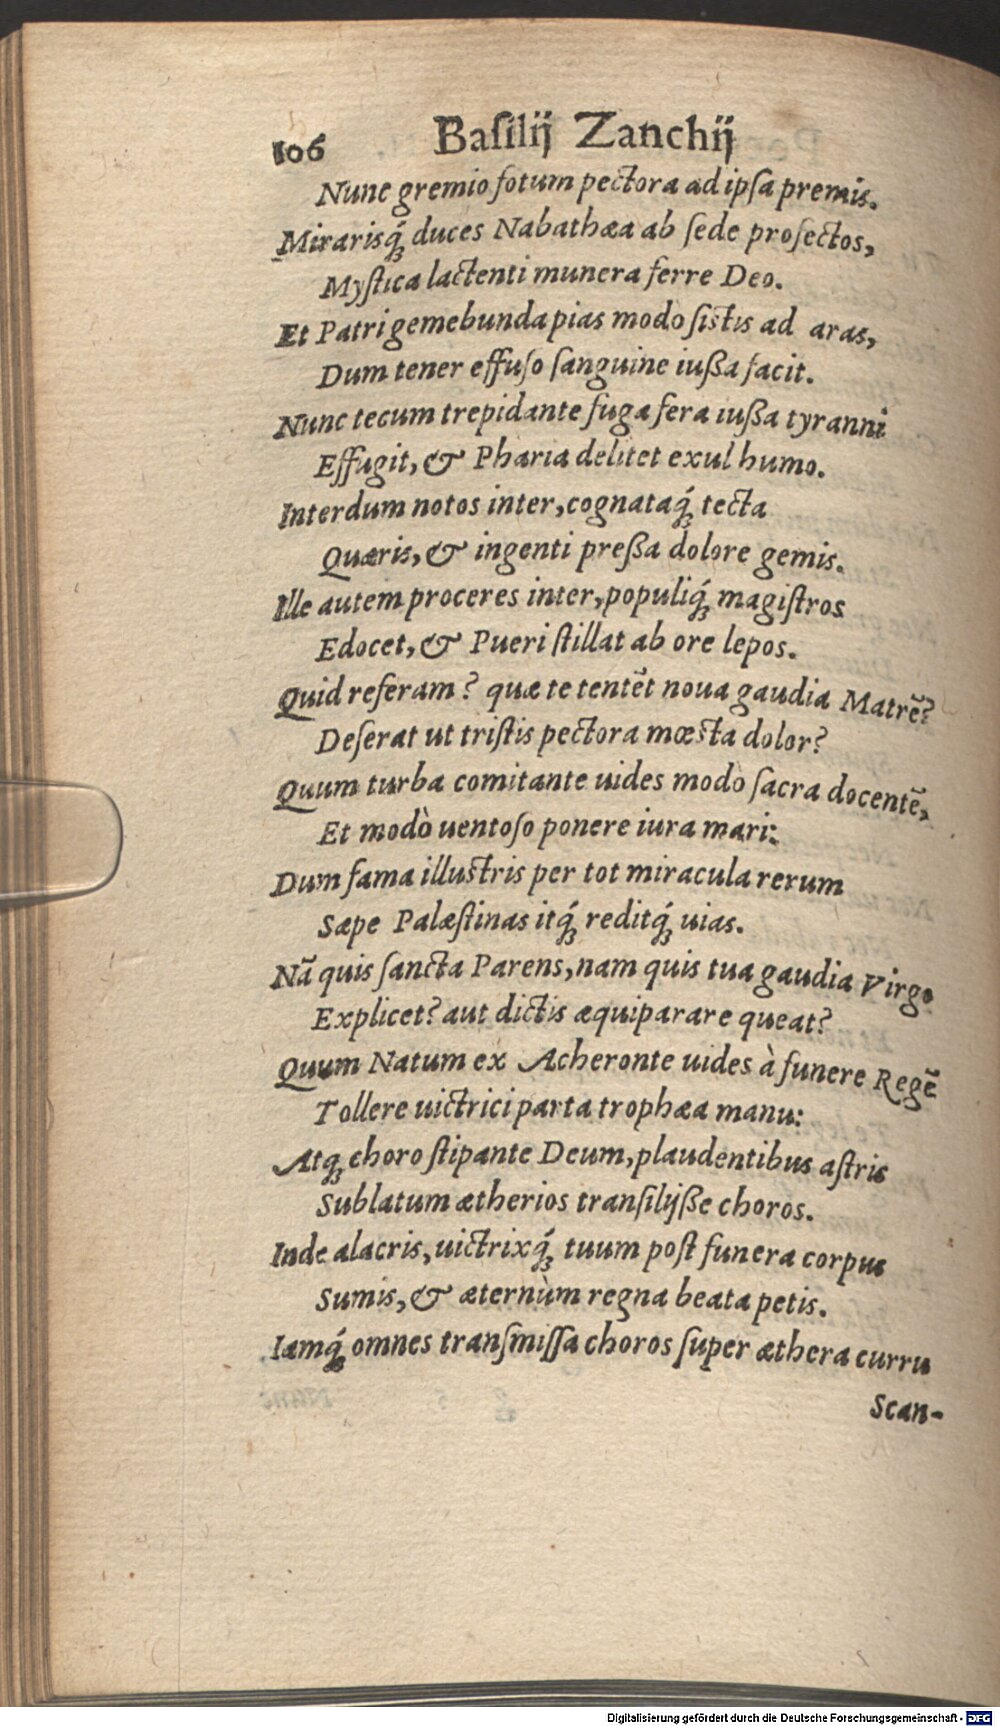 106 Baſilij Zanchij
Nunc gremio fotum pectora ad ipſa premis.
Mirarisq́ꝫ duces Nabathæa ab ſede profectos,
Myſtica lactenti munera ferre Deo.
Et Patri gemebunda pias modo ſistis ad aras,
Dum tener effuſo ſanguine iußa facit.
Nunc tecum trepidante fuga fera iußa tyranni
Effugit, & Pharia delitet exul humo.
Interdum notos inter, cognataq́ꝫ tecta
Quæris, & ingenti preßa dolore gemis.
Ille autem proceres inter, populiq́ꝫ magiſtros
Edocet, & Pueri ſtillat ab ore lepos.
Quid referam? quæ te tentẽt noua gaudia Matrẽ?
Deſerat ut triſtis pectora mœsta dolor?
Quum turba comitante uides modò ſacra docentẽ,
Et modò uentoſo ponere iura mari:
Dum fama illustris per tot miracula rerum
Sæpe Palæſtinas itq́ꝫ reditq́ꝫ uias.
Nã quis ſancta Parens, nam quis tua gaudia Virgo
Explicet? aut dictis æquiparare queat?
Quum Natum ex Acheronte uides à funere Regẽ
Tollere uictrici parta trophæa manu:
Atqꝫ choro ſtipante Deum, plaudentibus aſtris
Sublatum ætherios tranſilijße choros.
Inde alacris, uictrixq́ꝫ tuum poſt funera corpus
Sumis, & æternùm regna beata petis.
Iamq́ꝫ omnes tranſmiſſa choros ſuper æthera curru
Scan-
Digitalisierung gefördert durch die Deutsche Forschungsgemeinschaft - DFG